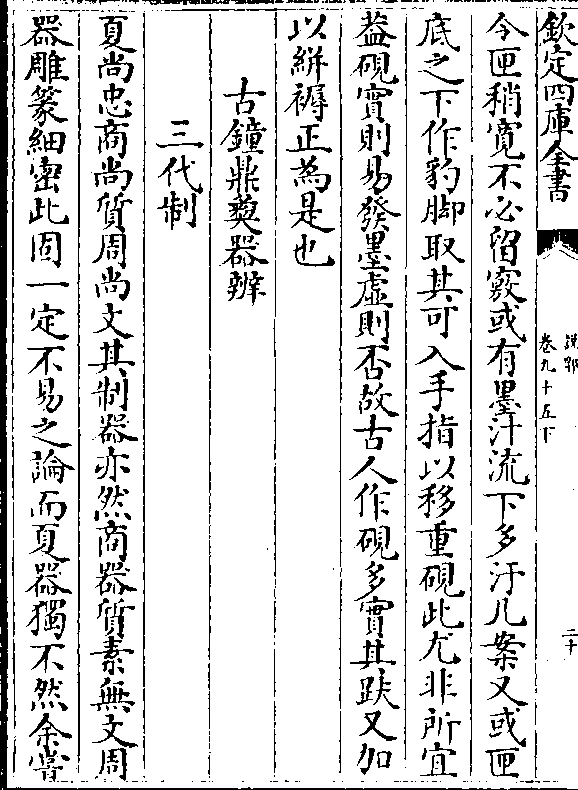 欽定四庫全書
説郛
卷九十五下
二十
今匣稍寛不必留竅或有墨汁流下多汙几案又或匣
底之下作豹脚取其可入手指以移重硯此尤非所宜
葢硯實則易發墨虛則否故古人作硯多實其趺又加
以絣褥正為是也
古鐘鼎奠器辨
三代制
夏尚忠商尚質周尚文其制器亦然商器質素無文周
器雕篆細密此固一定不易之論而夏器獨不然余嘗